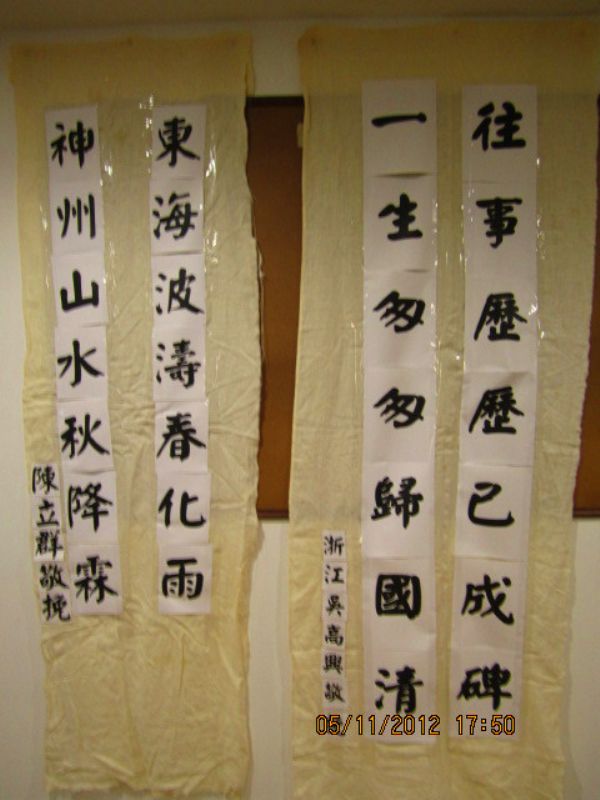 往事歷歷已成碑
一生匆匆歸國清
浙江吳高興敬
東海波濤春化雨
神州山水秋降霖
陳立群敬挽
05/11/2012 17:50